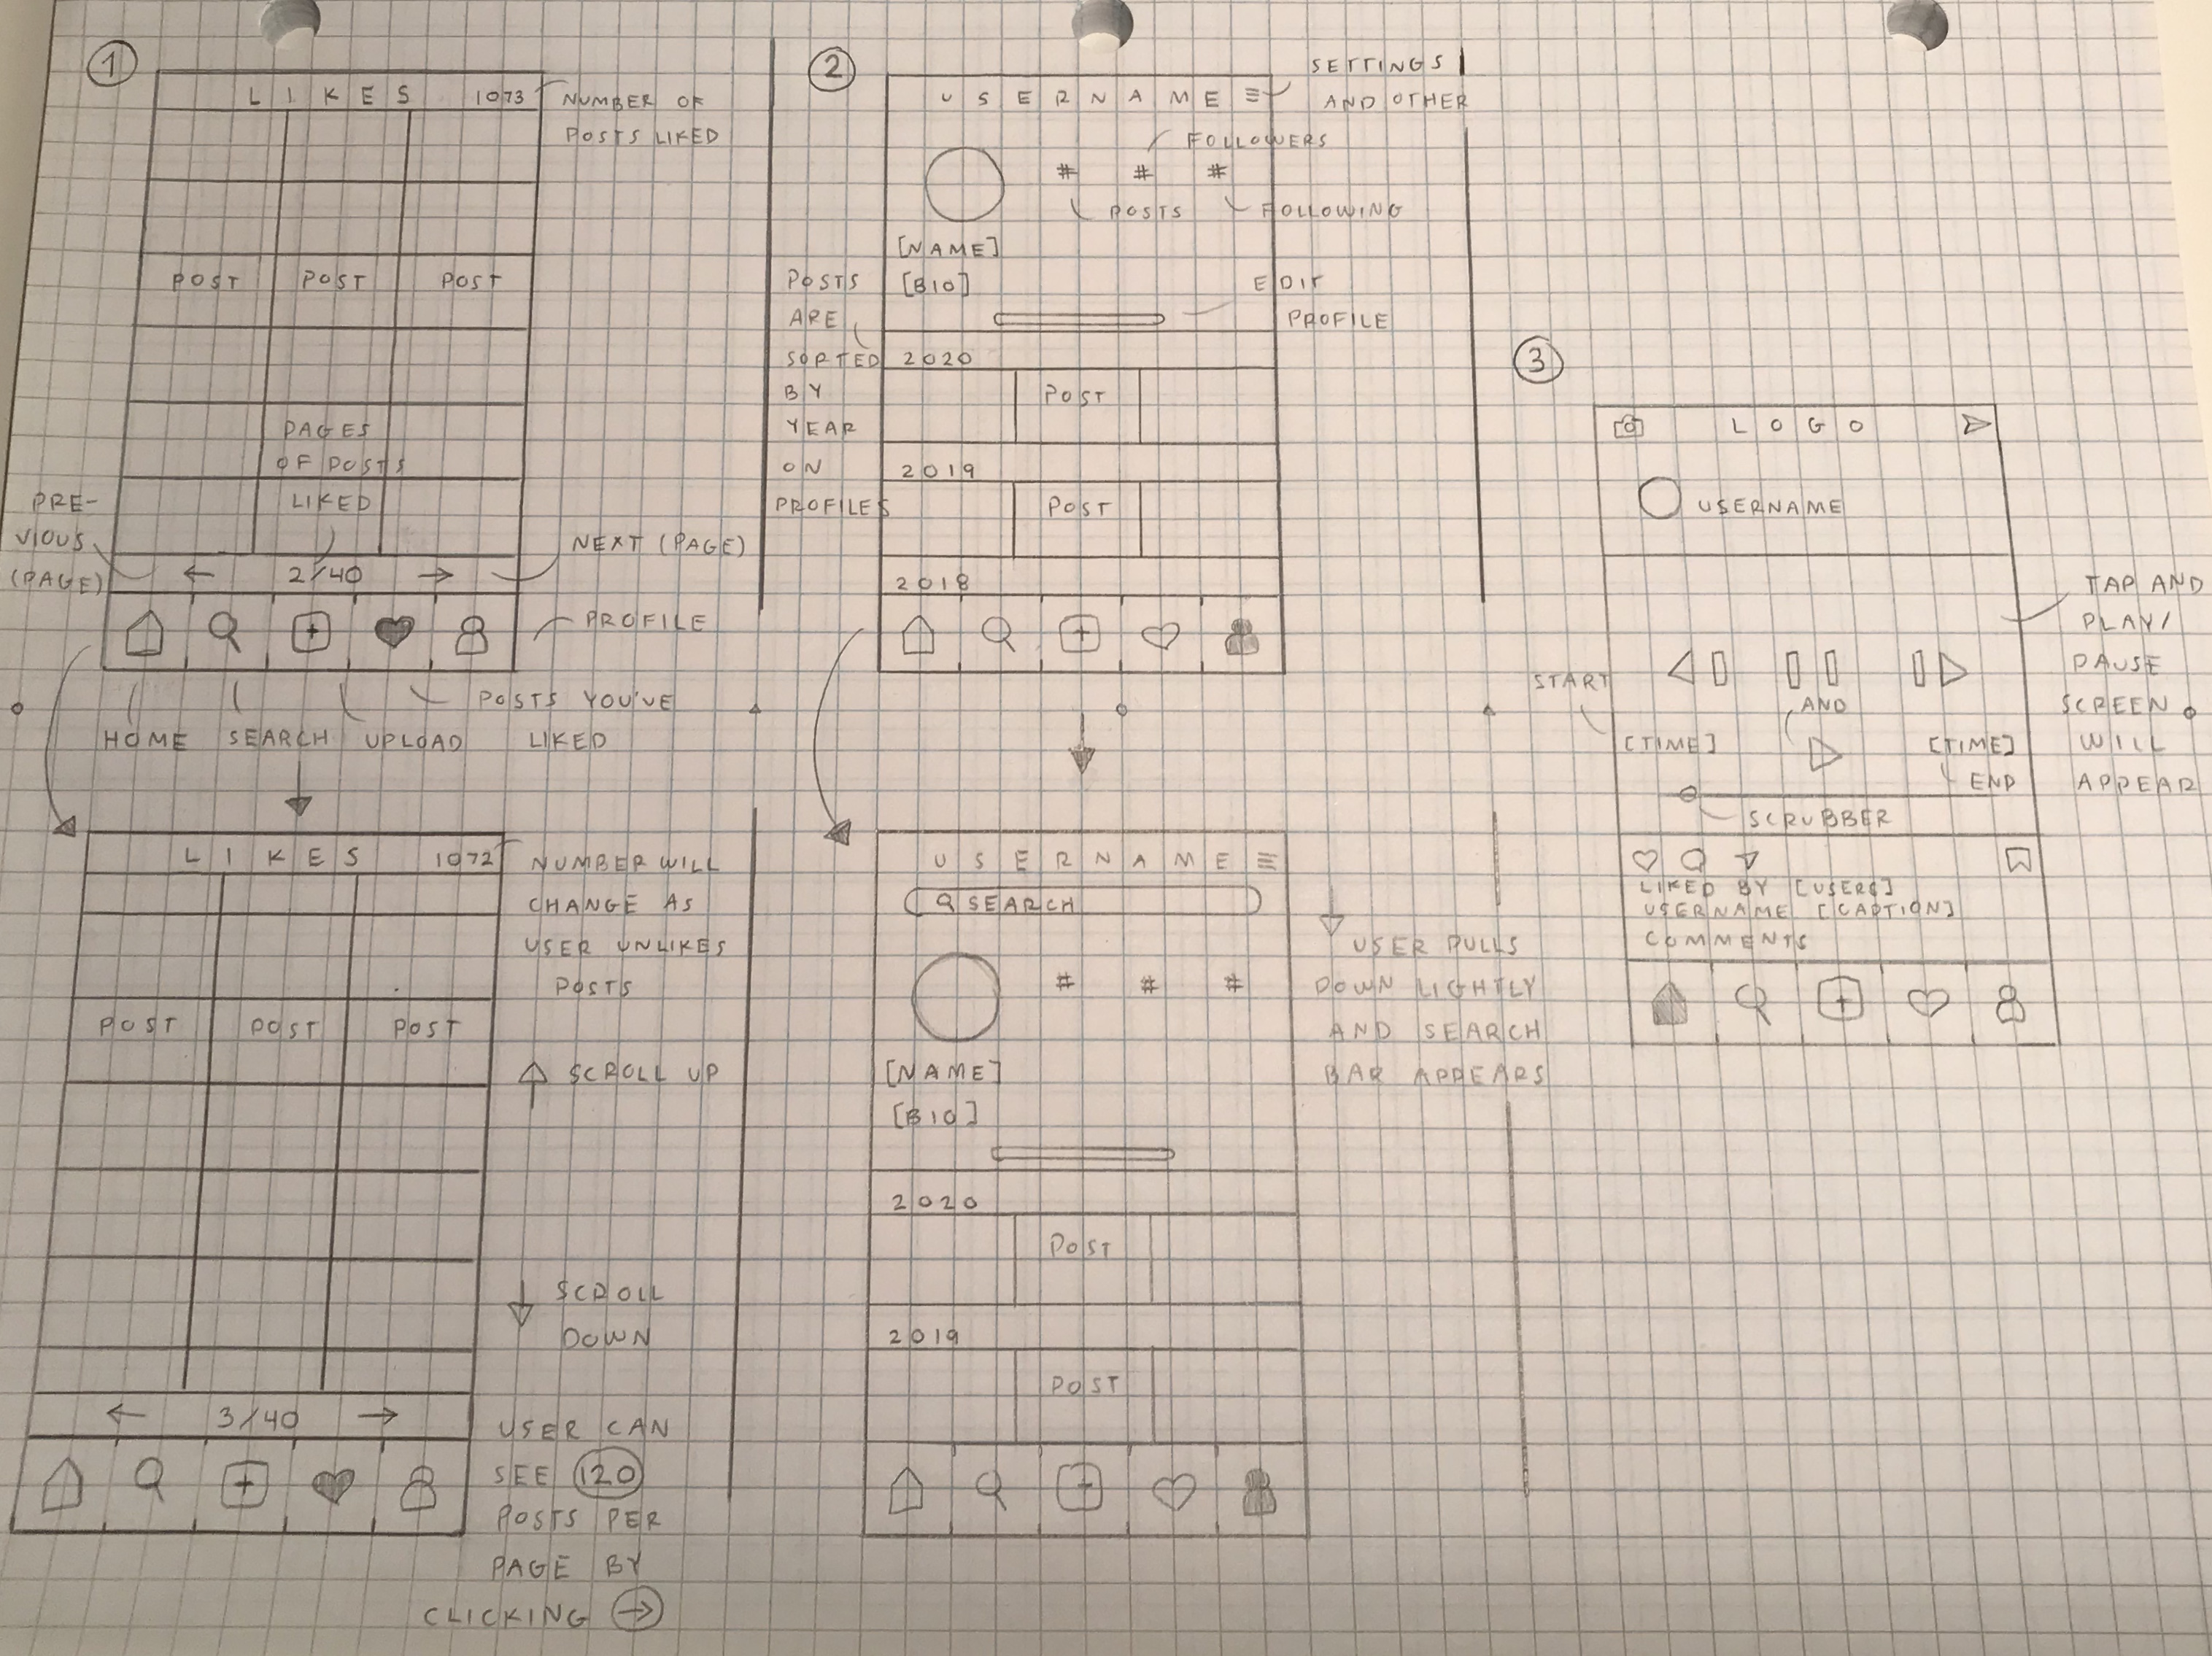 1
LIKES 1073
NUMBER OF
POSTS LIKED
POST POST POST
PAGES
OF POSTS
LIKED
PRE-
VIOUS
(PAGE)
← 2/40 →
NEXT (PAGE)
PROFILE
POSTS YOU'VE
LIKED
HOME SEARCH UPLOAD
LIKES 1072
NUMBER WILL
CHANGE AS
USER UNLIKES
POSTS
POST POST POST
↑ SCROLL UP
↓ SCROLL
DOWN
← 3/40 →
USER CAN
SEE 120
POSTS PER
PAGE BY
CLICKING →
2
USERNAME ≡
SETTINGS
AND OTHER
FOLLOWERS
# # #
POSTS FOLLOWING
[NAME]
[BIO]
EDIT
PROFILE
POSTS
ARE
SORTED
BY
YEAR
ON
PROFILES
2020
POST
2019
POST
2018
USERNAME ≡
SEARCH
# # #
[NAME]
[BIO]
2020
POST
2019
POST
↓ USER PULLS
DOWN LIGHTLY
AND SEARCH
BAR APPEARS
3
LOGO
USERNAME
TAP AND
PLAY/
PAUSE
SCREEN
WILL
APPEAR
START
AND
[TIME] [TIME]
END
SCRUBBER
LIKED BY [USERS]
USERNAME [CAPTION]
COMMENTS